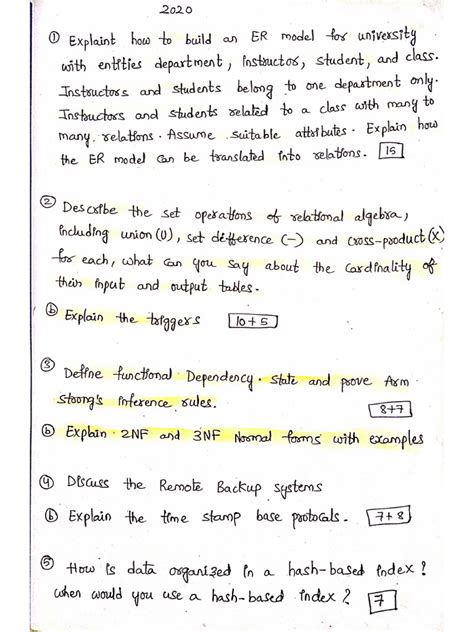 2020
① Explaint how to build an ER model for university
with entities department, instructor, student, and class.
Instructors and students belong to one department only.
Instructors and students related to a class with many to
many relations. Assume suitable attributes. Explain how
the ER model can be translated into relations. 15
② Describe the set operations of relational algebra,
including union (U), set difference (-) and cross-product (X)
for each, what can you say about the cardinality of
their input and output tables.
ⓑ Explain the triggers 10+5
③ Define functional Dependency. State and prove Arm
Strong's inference rules. 8+7
ⓑ Explain 2NF and 3NF Normal forms with examples
④ Discuss the Remote Backup systems
ⓑ Explain the time stamp base protocals. 7+8
⑤ How is data organized in a hash-based index?
when would you use a hash-based index? 7